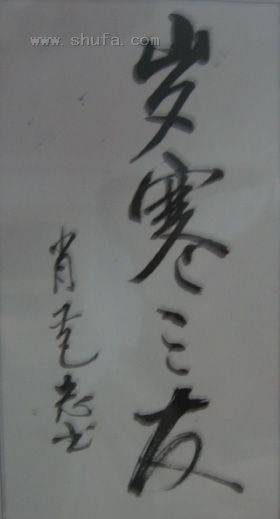 www.shufa.com
岁寒三友
肖克志书